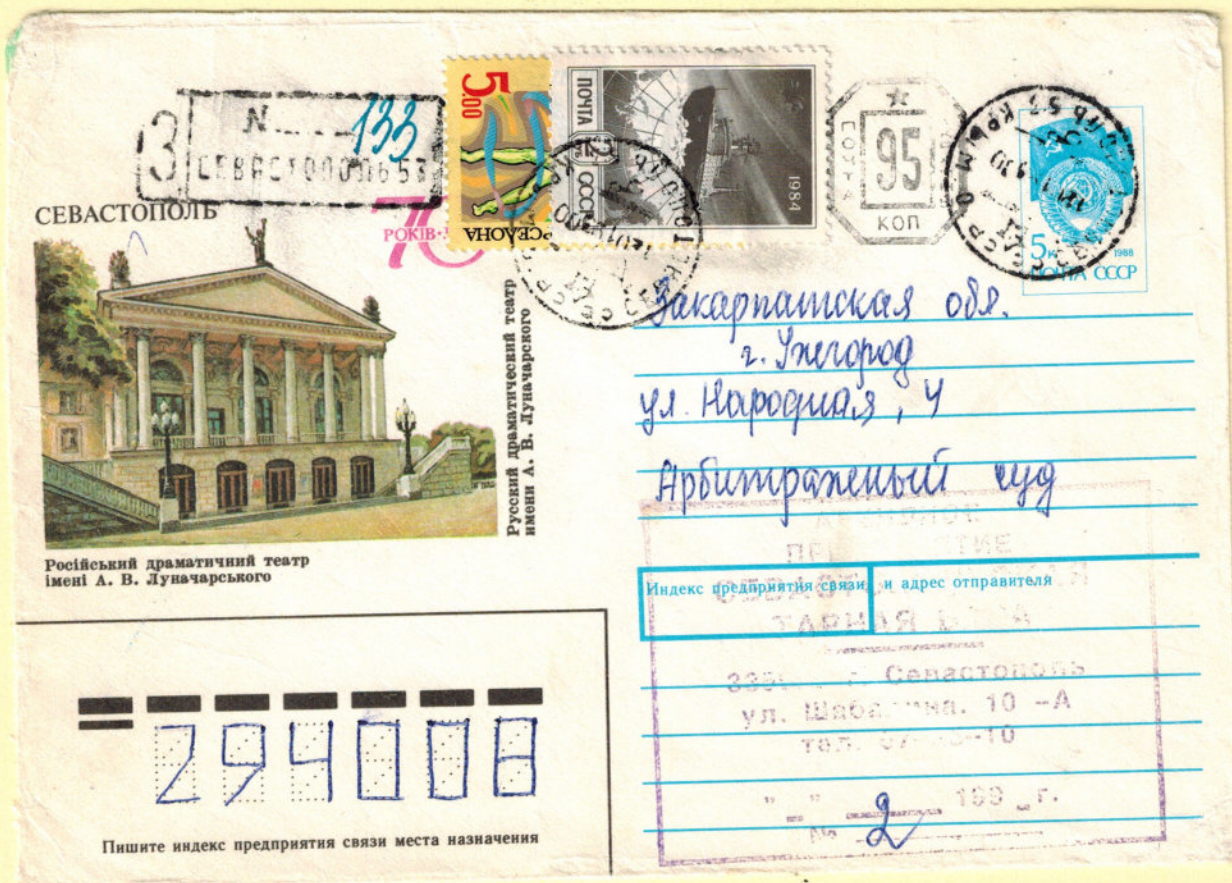 З
N 133
СЕВАСТОПОЛЬ
70
РОКІВ
5.00
ПОЧТА
СССР
1984
ПОЧТА
95
КОП
5к
1988
ПОЧТА СССР
Русский драматический театр
имени А. В. Луначарского
Російський драматичний театр
імені А. В. Луначарського
Закарпатская обл.
г. Ужгород
ул. Народная, 4
Арбитражный суд
Индекс предприятия связи и адрес отправителя
ТАРНАЯ
г. Севастополь
ул. 10 -А
тел.
" " 199_г.
№ 2
294008
Пишите индекс предприятия связи места назначения